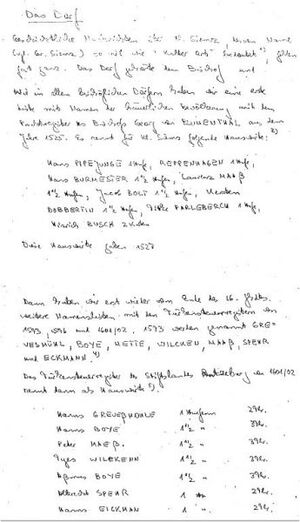 Das Dorf
Geschichtliche Nachrichten über Kl. Siemz, dessen Name
(vgl. Gr. Siemz) so viel wie "kalter Ort"
fast ganz. Das Dorf gehörte dem Bischof und
Wie in allen bischöflichen Dörfern haben wir eine erste
Liste mit Namen der bäuerlichen Bevölkerung mit dem
Pachtregister des Bischofs Georg von BLUMENTHAL aus dem
Jahre 1525. Es nennt für Kl. Siemz folgende Hauswirte:
Hans PIPEJUNGE 1 Hufe, REPPENHAGEN 1 Hufe,
Hans BURMESTER 1 1/2 Hufen, Laurenz MAAß
1 1/2 Hufen, Jacob BOLT 1 1/2 Hufen,
BOBBERTIN 1 1/2 Hufen, PARLEBERCH 1 Hufe,
Hinrich BUSCH 2 Hufen
Diese Hauswirte gaben 1527
Dann haben wir erst wieder vom Ende des 16. Jhdts.
weitere Namenslisten mit den Türkensteuerregistern von
1593, 1596 und 1601/02. 1593 werden genannt GRE-
VESMÜHL, BOYE, METTE, WILCKEN, MAAß, SPEHR
und ECKMANN. 4)
Das Türkensteuerregister des Stiftslandes Ratzeburg von 1601/02
nennt dann als Hauswirte 5).
Hanns GREVEßMÖHLE 1 Hufen 2 Mk.
Hanns BOYE 1 1/2 " 3 Mk.
Peter MAEß 1 1/2 " 3 Mk.
WILCKENN 1 1/2 " 3 Mk.
BOYE 1 1/2 " 3 Mk.
Albrecht SPEHR 1 2 Mk.
Hanns EICKMAN 1 " 2 Mk.